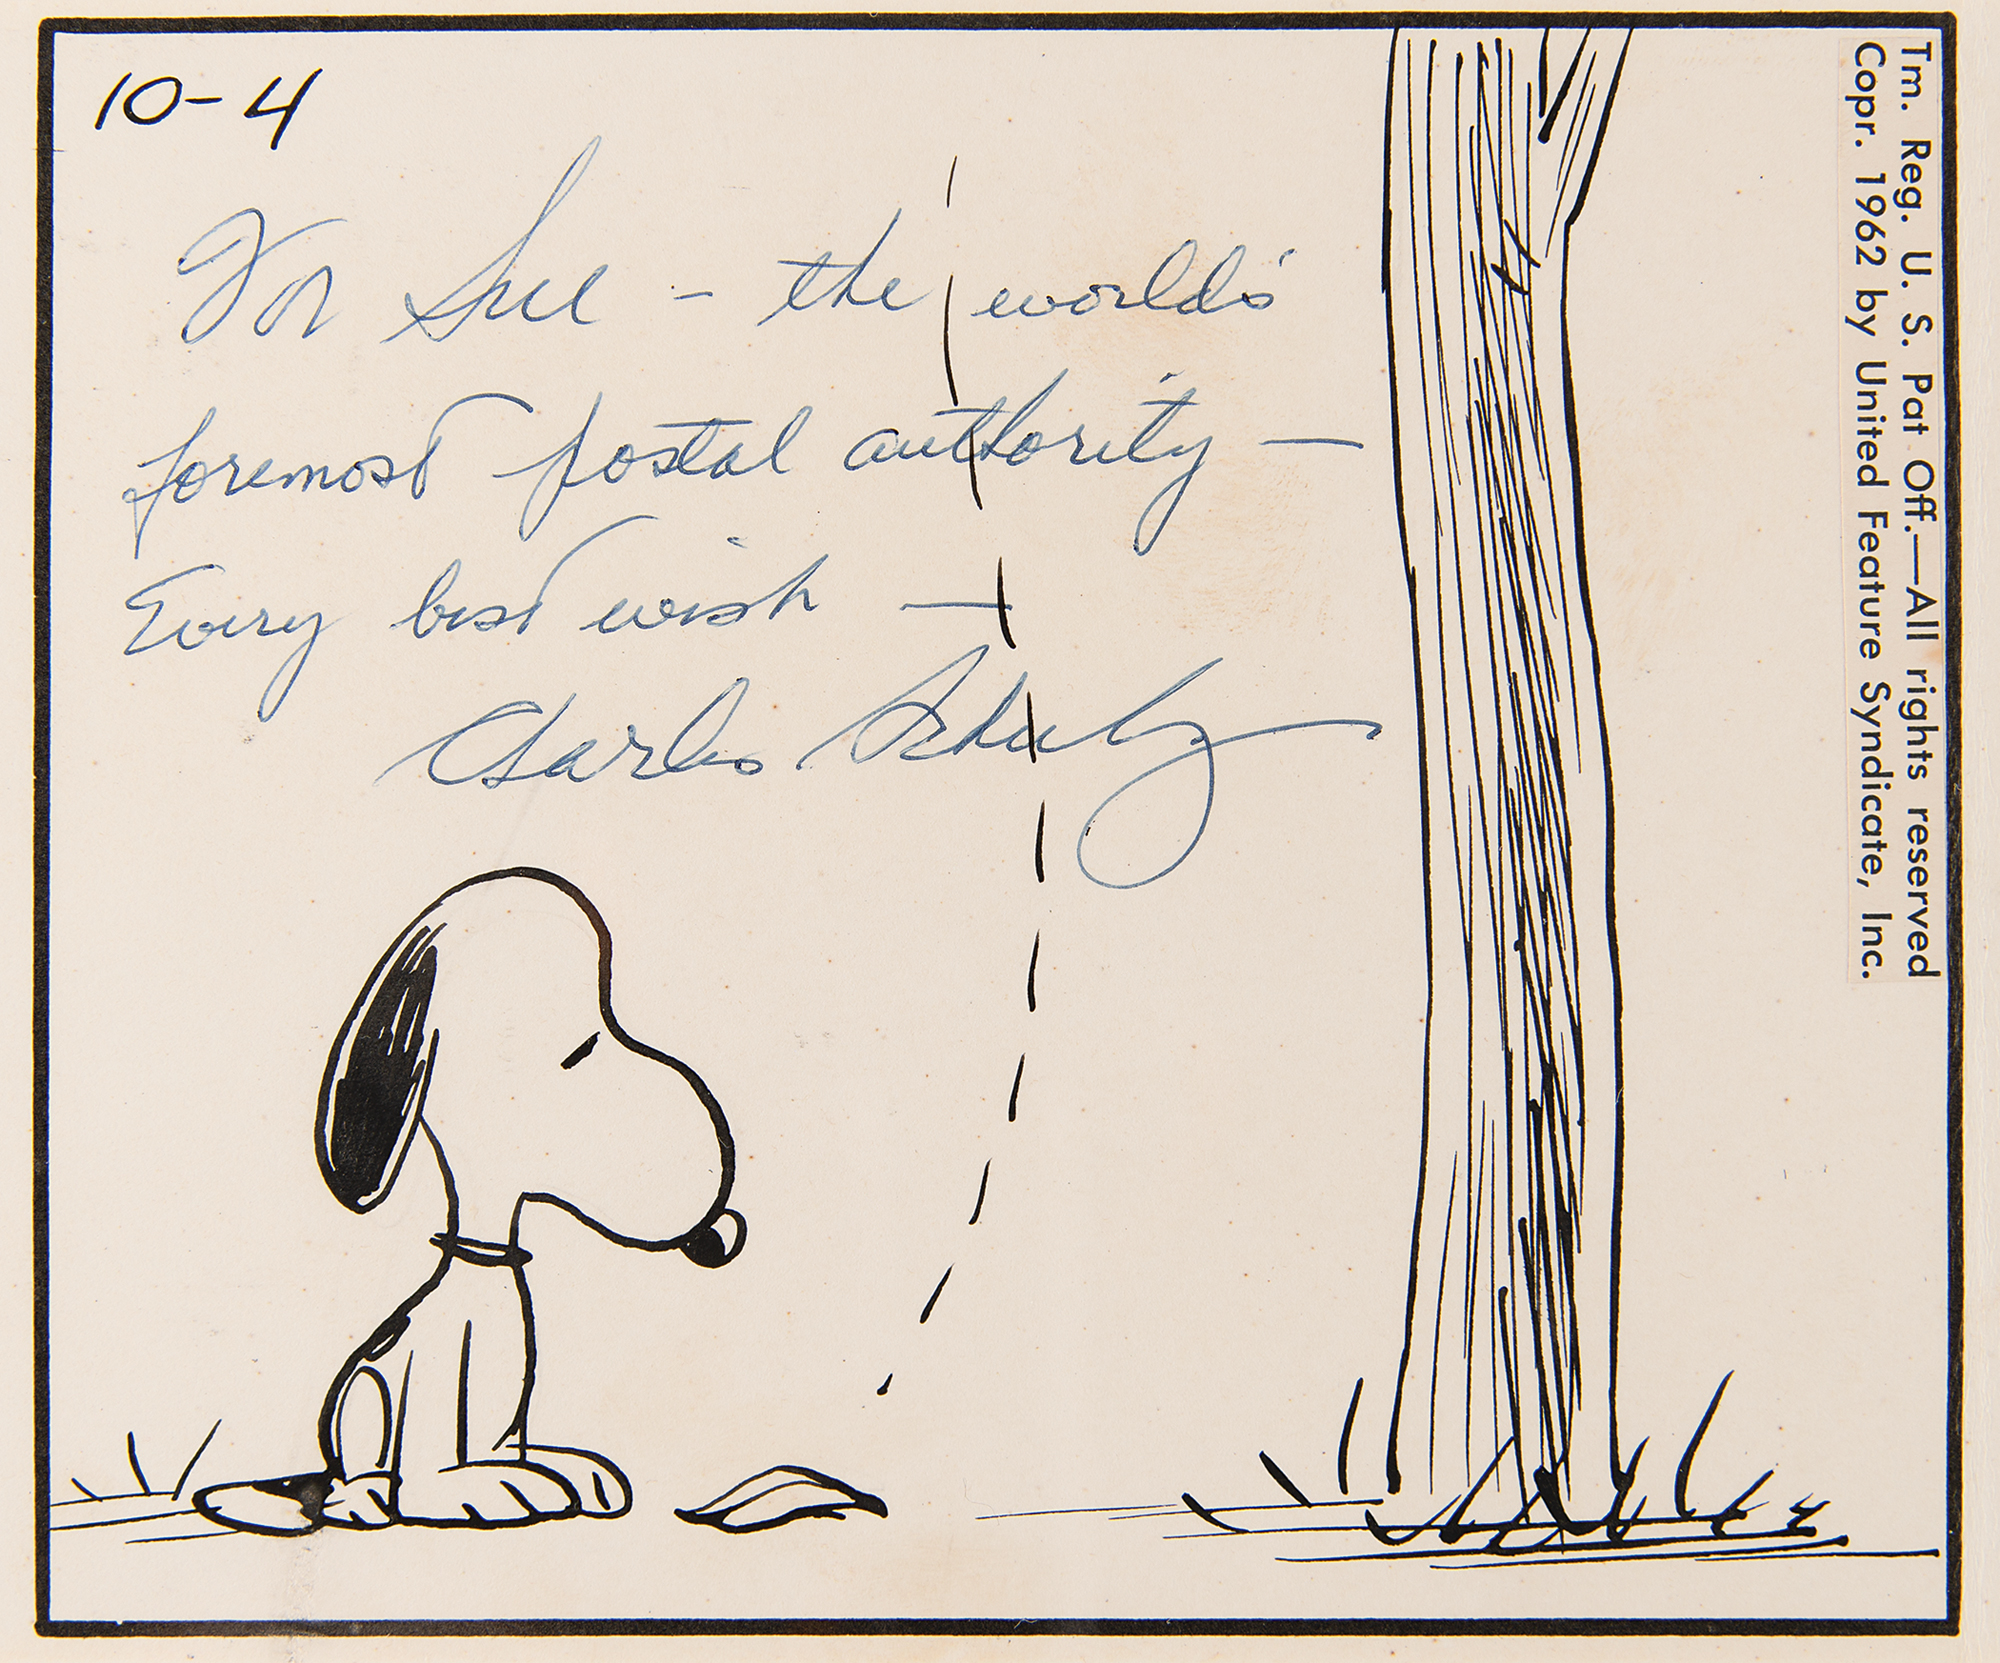 10-4
For Sue - the world's
foremost postal authority —
Every best wish —
Charles Schulz
Tm. Reg. U. S. Pat Off.—All rights reserved
Copr. 1962 by United Feature Syndicate, Inc.